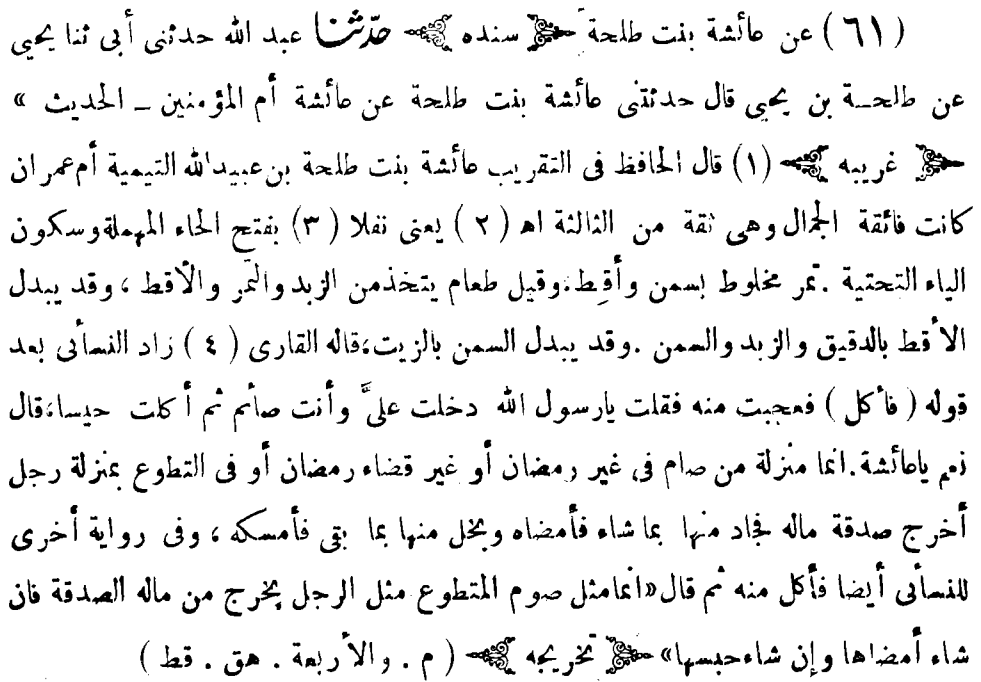 (٦١) عن عائشة بنت طلحة سنده حدّثنا عبد الله حدثنى أبى ثنا يحيى
عن طلحة بن يحيى قال حدثتنى عائشة بنت طلحة عن عائشة أم المؤمنين - الحديث »
غريبه (١) قال الحافظ فى التقريب عائشة بنت طلحة بن عبيد الله التيمية أم عمران
كانت فائقة الجمال وهى ثقة من الثالثة اه (٢) يعنى نفلا (٣) بفتح الحاء المهملة وسكون
الياء التحتية . تمر مخلوط بسمن وأقِط، وقيل طعام يتخذ من الزبد والتمر والأقط ، وقد يبدل
الأقط بالدقيق والزبد والسمن . وقد يبدل السمن بالزيت، قاله القارى (٤) زاد النسائى بعد
قوله (فأكل) فعجبت منه فقلت يارسول الله دخلت علىَّ وأنت صائم ثم أكلت حيسا، قال
نعم ياعائشة . انما منزلة من صام فى غير رمضان أو غير قضاء رمضان أو فى التطوع بمنزلة رجل
أخرج صدقة ماله فجاد منها بما شاء فأمضاه وبخل منها بما بقى فأمسكه ، وفى رواية أخرى
للنسائى أيضا فأكل منه ثم قال «انما مثل صوم المتطوع مثل الرجل يخرج من ماله الصدقة فان
شاء أمضاها وإن شاء حبسها» تخريجه (م . والأربعة . هق . قط)